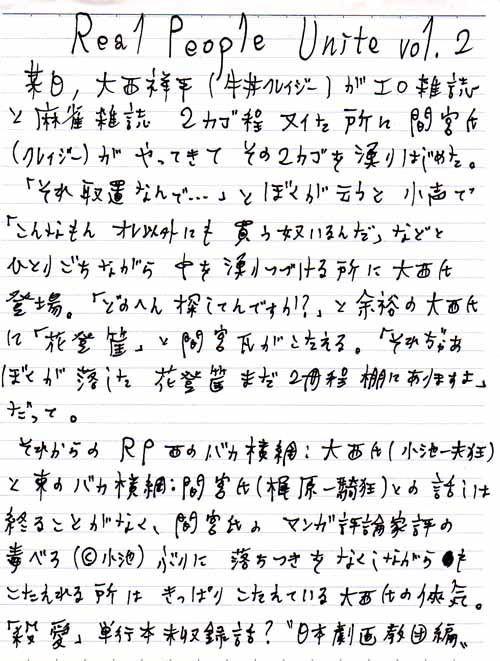 Real People Unite vol. 2
某日, 大西祥平 (牛丼クレイジー) がエロ雑誌
と麻雀雑誌 2カゴ程 した所に 間宮氏
(クレイジー) が やってきて その2カゴを 漁りはじめた。
「それ 取置なんで…」とぼくが云うと 小声で
「こんなもん オレ以外にも 買う奴いるんだ」などと
ひとりごちながら 中を 漁りつづける所に 大西氏
登場。「どのへん 探してんですか!?」と余裕の大西氏
に「花登筐」と間宮氏がこたえる。「それぢゃあ
ぼくが 落した 花登筐 まだ 2冊程 棚にありますよ」
だって。
それからの RP 西のバカ横綱:大西氏 (小池一夫狂)
と東のバカ横綱:間宮氏 (梶原一騎狂) との話しは
終ることがなく、間宮氏の マンガ評論家評の
毒べろ (©小池) ぶりに 落ちつきを なくしながらも
こたえれる所は きっぱり こたえている 大西氏の侠気。
「殺愛」単行本未収録話? "日本劇画教団編"